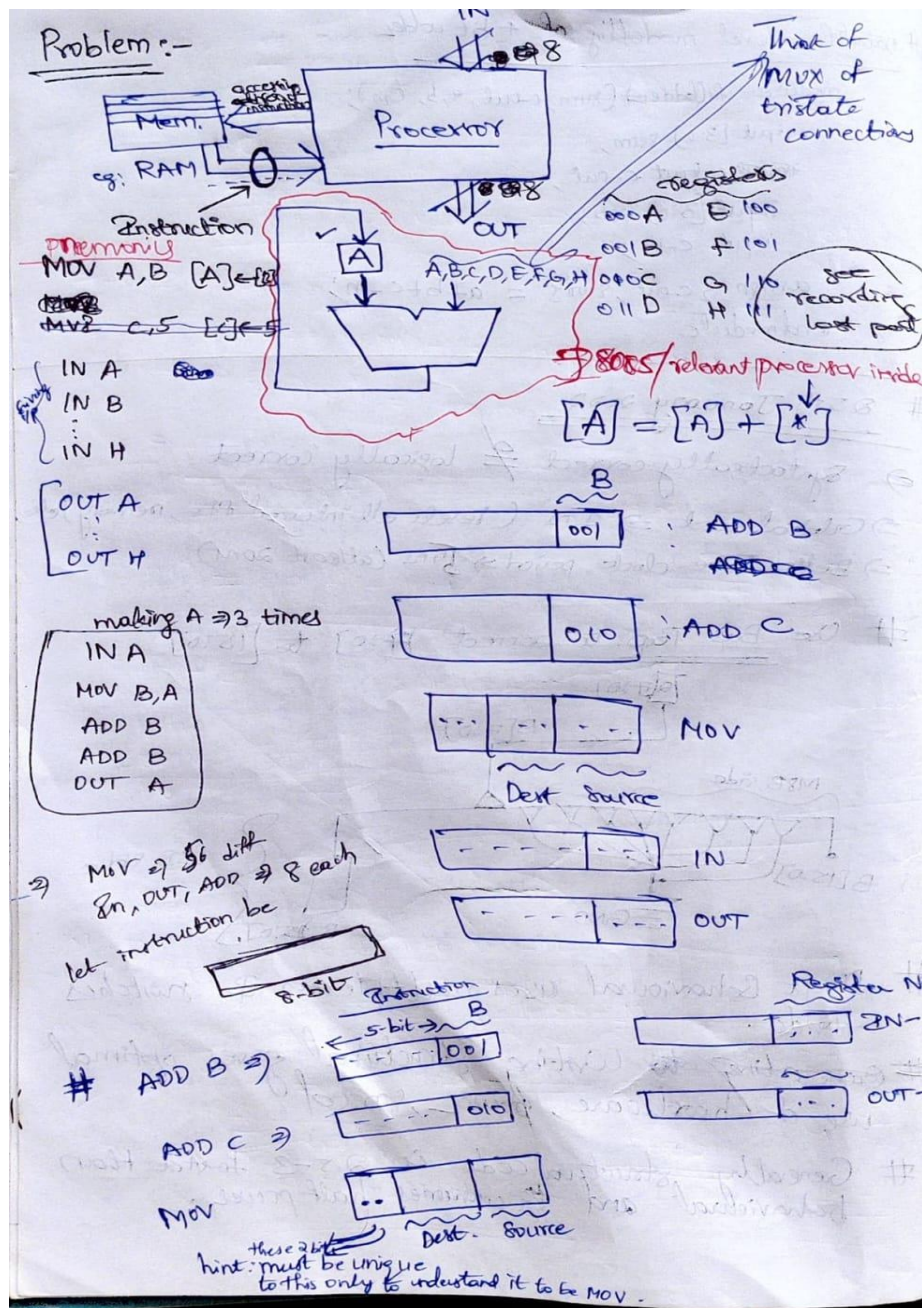 Problem :-
IN
8
Think of
MUX of
tristate
connections
Mem.
Processor
eg: RAM
8
OUT
Instruction
registers
000 A E 100
001 B F 101
010 C G 110
011 D H 111
see
recording
last part
pnemonics
MOV A,B [A]←[B]
C,5 [C]←5
A
A,B,C,D,E,F,G,H
⇒ 8085/relevant processor inside
IN A
IN B
⋮
IN H
[A] = [A] + [*]
OUT A
⋮
OUT H
B
001 : ADD B
010 : ADD C
making A ⇒ 3 times
IN A
MOV B,A
ADD B
ADD B
OUT A
--- --- --- MOV
Dest Source
IN
OUT
⇒ MOV ⇒ 56 diff
In, OUT, ADD ⇒ 8 each
let instruction be
8-bit
Instruction
5-bit → B
# ADD B ⇒ 001
ADD C ⇒ 010
MOV
Dest. Source
Register N
IN-
OUT-
these 2 bits
hint: must be unique
to this only to understand it to be MOV.